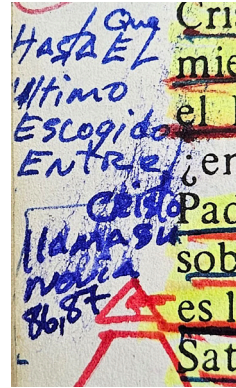 Que
HASTA EL
Ultimo
Escogido
ENTRE
Cristo
llama su
Novia
86,87
Cris
mie
el
¿en
Pad
sob
es l
Sat